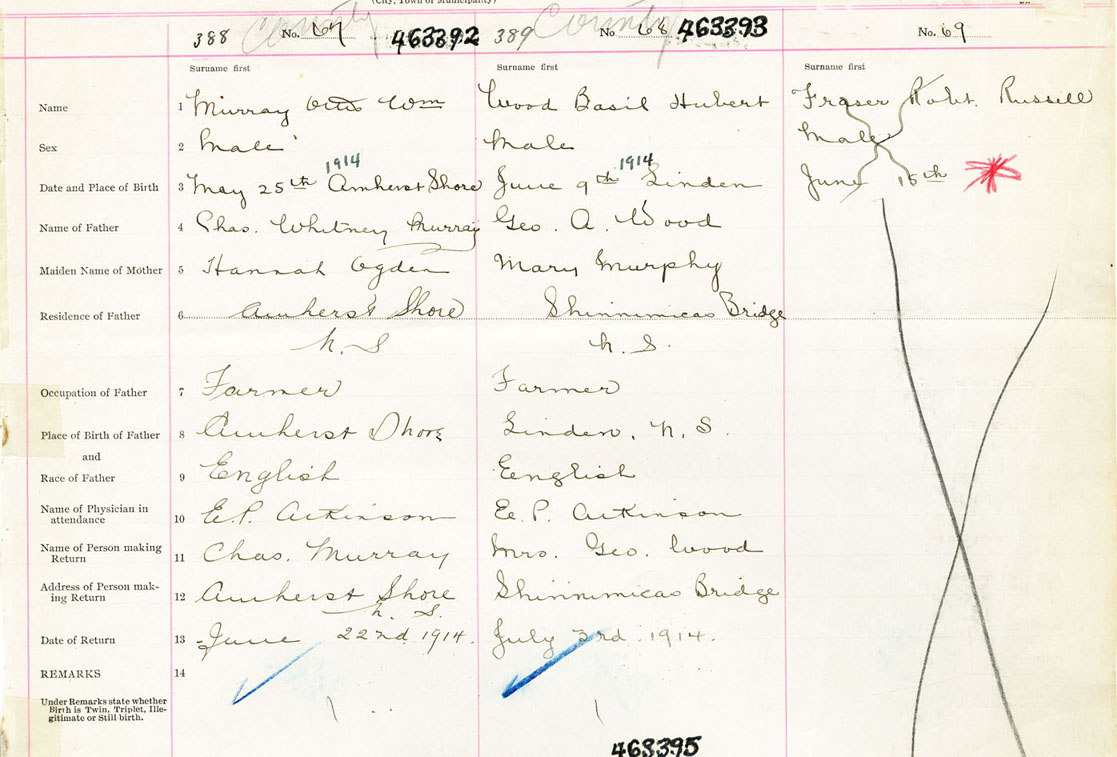 (City, Town or Municipality)
388 County No. 67 463392 389 County No 68 463393 No. 69
Surname first Surname first Surname first
Name 1 Murray Otto Wm Wood Basil Hubert Fraser Robt. Russell
Sex 2 Male Male Male
1914 1914
Date and Place of Birth 3 May 25th Amherst Shore June 9th Linden June 15th
Name of Father 4 Chas. Whitney Murray Geo. A. Wood
Maiden Name of Mother 5 Hannah Ogden Mary Murphy
Residence of Father 6 Amherst Shore Shinnimicas Bridge
N. S N. S.
Occupation of Father 7 Farmer Farmer
Place of Birth of Father 8 Amherst Shore Linden, N. S.
and
Race of Father 9 English English
Name of Physician in
attendance 10 E. P. Atkinson E. P. Atkinson
Name of Person making
Return 11 Chas. Murray Mrs. Geo. Wood
Address of Person mak-
ing Return 12 Amherst Shore Shinnimicas Bridge
N. S.
Date of Return 13 June 22nd 1914. July 3rd 1914.
REMARKS 14
Under Remarks state whether
Birth is Twin, Triplet, Ille-
gitimate or Still birth.
463395